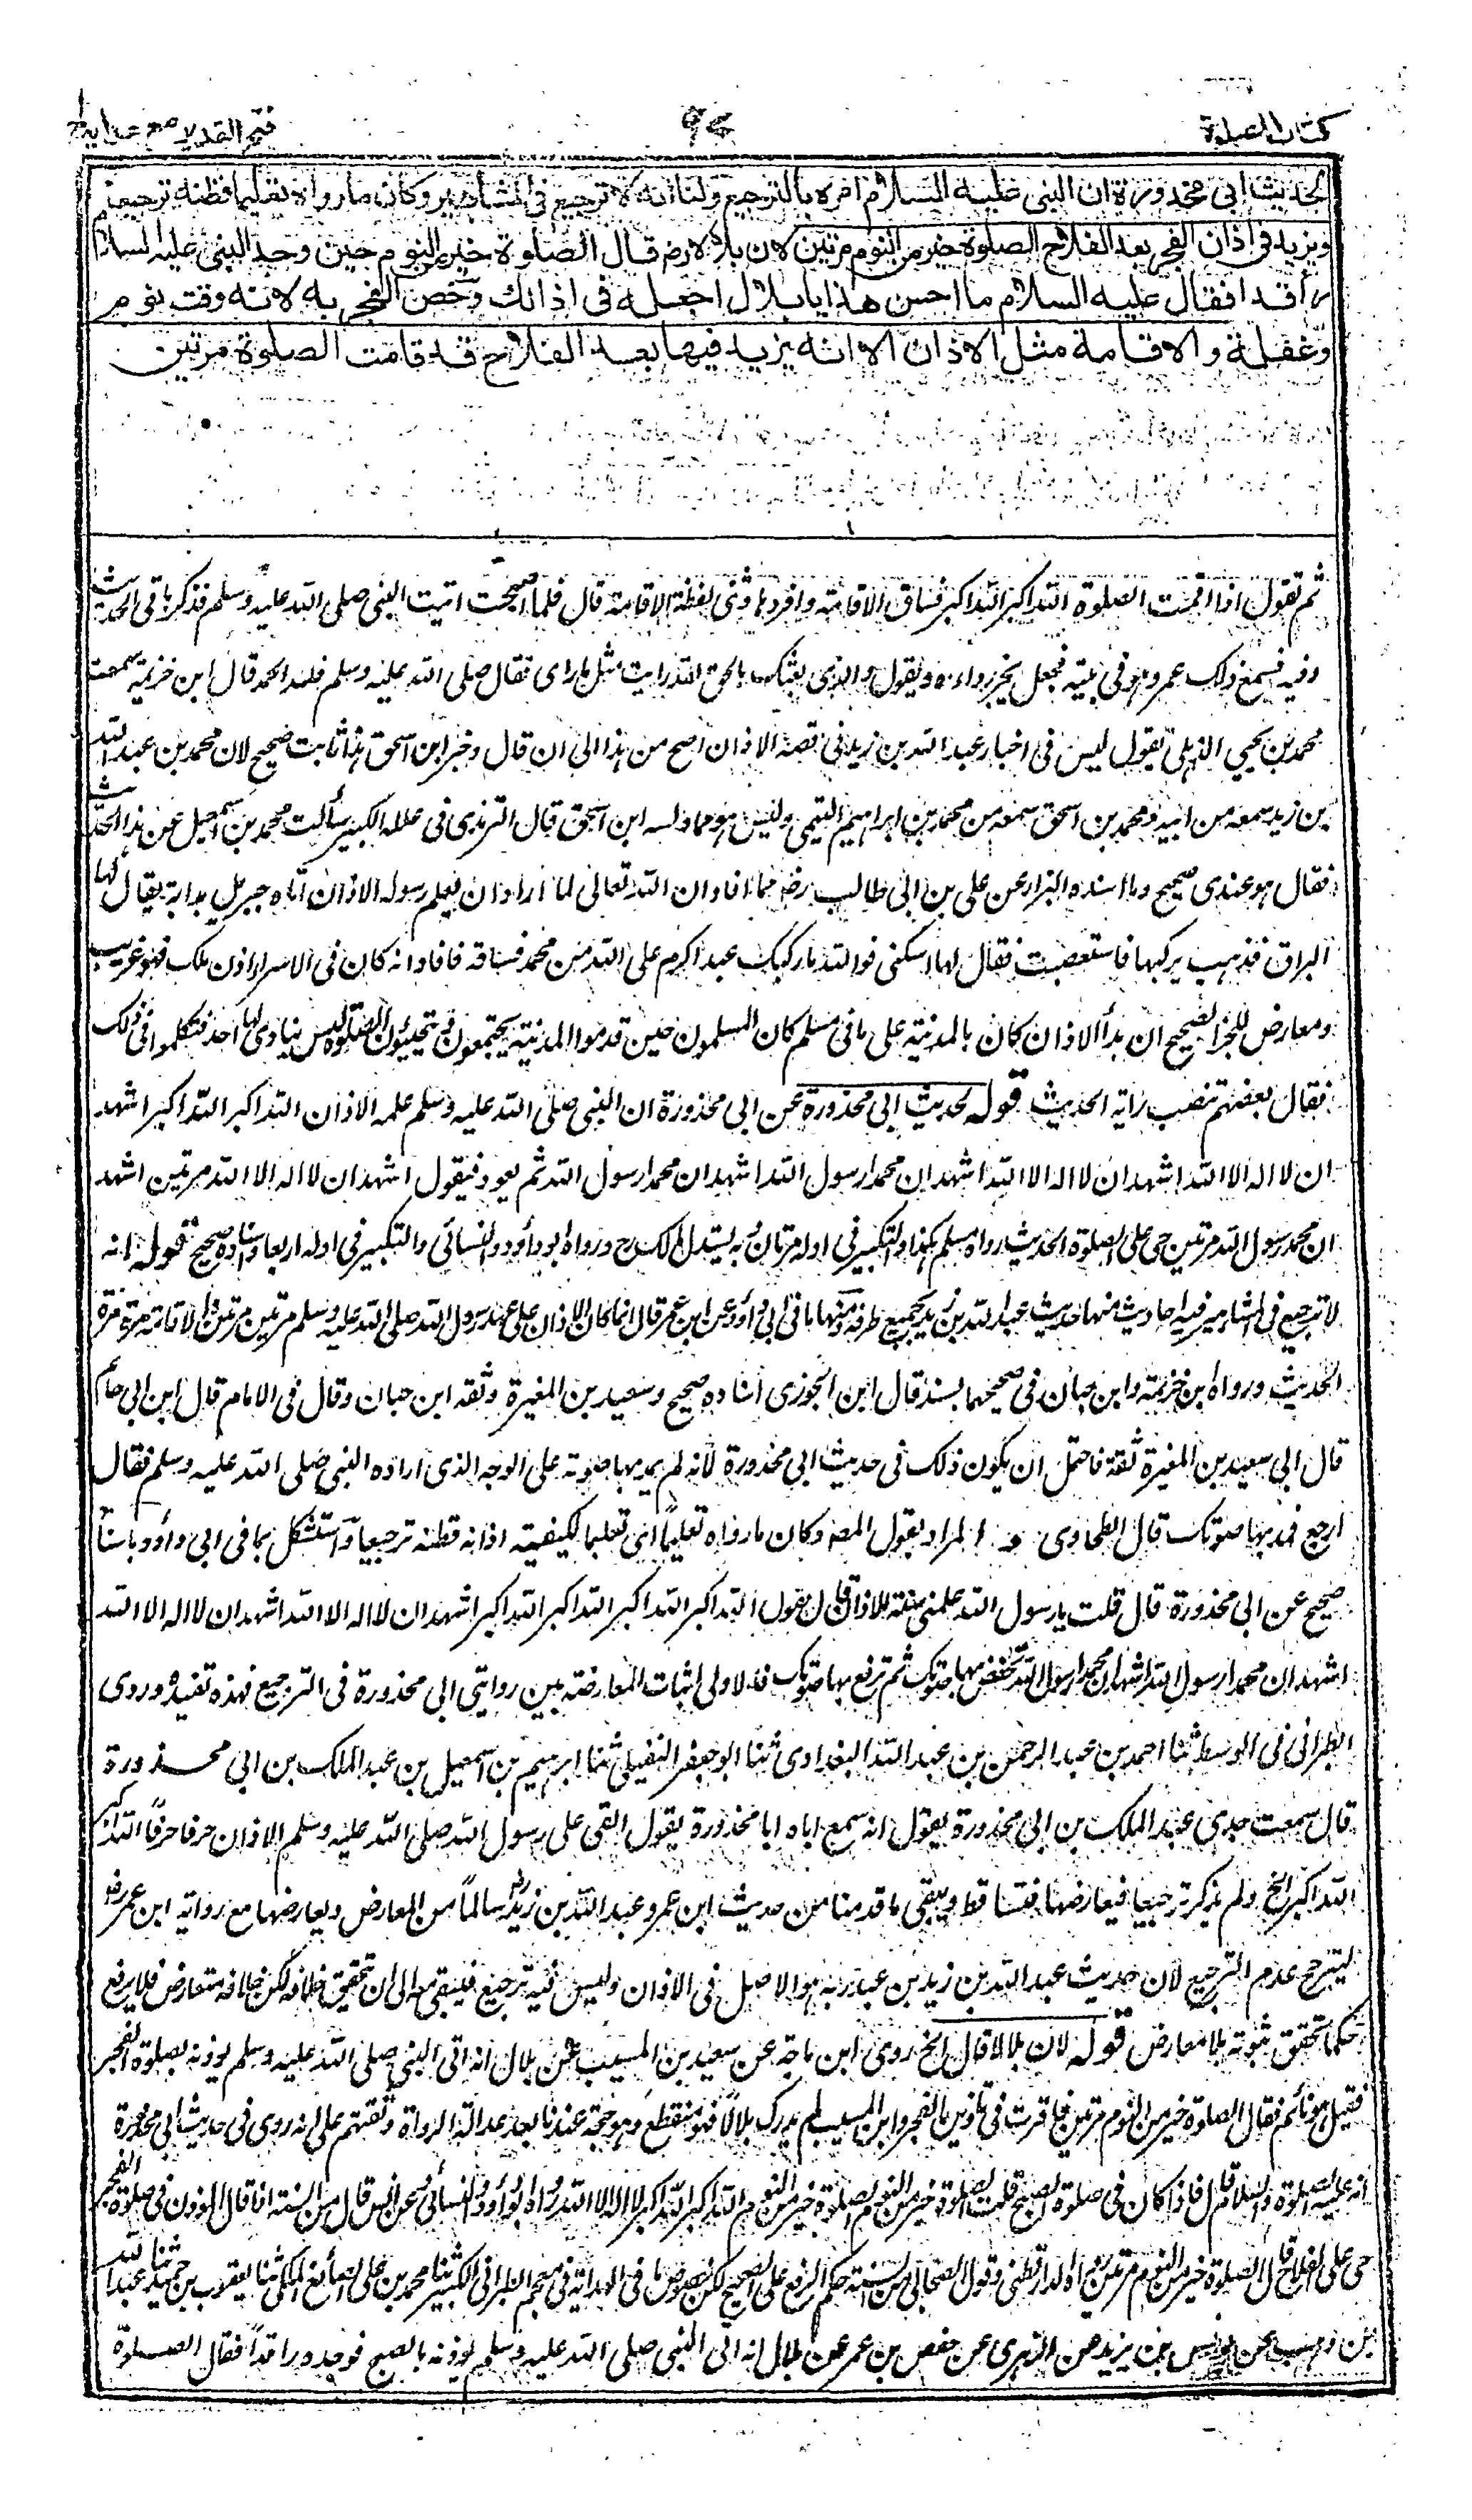 كتاب الصلوة
٩٧
فتح القدير مع هدايه ج
لحديث ابي محذورة ان النبي عليه السلام امره بالترجيع ولنا انه لا ترجيع في المشاهير وكان ما رواه تعليما فظنه ترجيعا
ويزيد في اذان الفجر بعد الفلاح الصلوة خير من النوم مرتين لان بلالا رض قال الصلوة خير من النوم حين وجد النبي عليه السلام
راقدا فقال عليه السلام ما احسن هذا يا بلال اجعله في اذانك وخص الفجر به لانه وقت نوم
وغفلة والاقامة مثل الاذان الا انه يزيد فيها بعد الفلاح قد قامت الصلوة مرتين
ثم تقول اذا اقمت الصلوة الله اكبر الله اكبر فساق الاقامة وافردها وثنى لفظة الاقامة قال فلما اصبحت اتيت النبي صلى الله عليه وسلم فذكر باقي الحديث
وفيه فسمع ذلك عمر وهو في بيته فجعل يجر رداءه ويقول والذي بعثك بالحق لقد رايت مثل ما راى فقال صلى الله عليه وسلم فلله الحمد قال ابن خزيمة سمعت
محمد بن يحيي الذهلي يقول ليس في اخبار عبد الله بن زيد في قصة الاذان اصح من هذا الى ان قال وخبر ابن اسحق هذا ثابت صحيح لان محمد بن عبد الله
بن زيد سمعه من ابيه ومحمد بن اسحق سمعه من محمد بن ابراهيم التيمي وليس هو مما دلسه ابن اسحق قال الترمذي في علله الكبير سألت محمد بن اسمعيل عن هذا الحديث
فقال هو عندي صحيح وما اسنده البزار عن علي بن ابي طالب رض مما افاد ان الله تعالى لما اراد ان يعلم رسوله الاذان اتاه جبريل بدابة يقال لها
البراق فذهب يركبها فاستعصبت فقال لها اسكني فوالله ما ركبك عبد اكرم على الله من محمد فساقه فافاد انه كان في الاسراء اذن ملك فهو غريب
ومعارض للخبر الصحيح ان بدأ الاذان كان بالمدينة على ما في مسلم كان المسلمون حين قدموا المدينة يجتمعون فيتحينون الصلوة ليس ينادي لها احد فتكلموا في ذلك
فقال بعضهم تنصب راية الحديث قوله لحديث ابي محذورة عن ابي محذورة ان النبي صلى الله عليه وسلم علمه الاذان الله اكبر الله اكبر اشهد
ان لا اله الا الله اشهد ان لا اله الا الله اشهد ان محمدا رسول الله اشهد ان محمدا رسول الله ثم يعود فيقول اشهد ان لا اله الا الله مرتين اشهد
ان محمدا رسول الله مرتين حي على الصلوة الحديث رواه مسلم هكذا والتكبير في اوله مرتان وبه يستدل لمالك رح ورواه ابو داود والنسائي والتكبير في اوله اربعا واسناده صحيح قوله انه
لا ترجيع في المشاهير فيه احاديث منها حديث عبد الله بن زيد بجميع طرقه ومنها ما في ابي داود عن ابن عمر قال انما كان الاذان على عهد رسول الله صلى الله عليه وسلم مرتين مرتين والاقامة مرة مرة
الحديث ورواه ابن خزيمة وابن حبان في صحيحهما بسند قال ابن الجوزي اسناده صحيح وسعيد بن المغيرة وثقه ابن حبان وقال في الامام قال ابن ابي حاتم
قال ابي سعيد بن المغيرة ثقة فاحتمل ان يكون ذلك في حديث ابي محذورة لأنه لم يمد بها صوته على الوجه الذي اراده النبي صلى الله عليه وسلم فقال
ارجع فمد بها صوتك قال الطحاوي المراد بقول المصـ وكان ما رواه تعليما اي تعليما لكيفية اذانه فظنه ترجيعا واستشكل بما في ابي داود باسناد
صحيح عن ابي محذورة قال قلت يا رسول الله علمني سنة الاذان قال تقول الله اكبر الله اكبر الله اكبر الله اكبر اشهد ان لا اله الا الله اشهد ان لا اله الا الله
اشهد ان محمدا رسول الله اشهد ان محمدا رسول الله تخفض بها صوتك ثم ترفع بها صوتك فالاولى اثبات المعارضة بين روايتي ابي محذورة في الترجيع فهذه تفيده وروى
الطبراني في الوسط ثنا احمد بن عبد الرحمن بن عبد الله البغدادي ثنا ابو جعفر النفيلي ثنا ابرهيم بن اسمعيل بن عبد الملك بن ابي محذورة
قال سمعت جدي عبد الملك بن ابي محذورة يقول انه سمع اباه ابا محذورة يقول القى علي رسول الله صلى الله عليه وسلم الاذان حرفا حرفا الله اكبر
الله اكبر الخ ولم يذكر ترجيعا فيعارضها فتساقط ويبقى ما قدمنا من حديث ابن عمر وعبد الله بن زيد رض سالما من المعارض ويعارضها مع رواية ابن عمر رض
ليترجح عدم الترجيع لان حديث عبد الله بن زيد بن عبد ربه هو الاصل في الاذان وليس فيه ترجيع فيبقى معه الى ان يتحقق خلافه لكن خلافه متعارض فلا يرفع
حكما تحقق ثبوته بلا معارض قوله لان بلالا قال الخ روى ابن ماجة عن سعيد بن المسيب عن بلال انه اتى النبي صلى الله عليه وسلم يوذنه بصلوة الفجر
فقيل هو نائم فقال الصلوة خير من النوم مرتين فاقرت في تاذين الفجر وابن المسيب لم يدرك بلالا فهو منقطع وهو حجة عندنا بعد عدالة الرواة وثقتهم على انه روى في حديث ابي محذورة
انه عليه الصلوة والسلام قال فاذا كان في صلوة الصبح قلت الصلوة خير من النوم الصلوة خير من النوم الله اكبر الله اكبر لا اله الا الله رواه ابو داود والنسائي وعن انس قال من السنة اذا قال الموذن في صلوة الفجر
حي على الفلاح قال الصلوة خير من النوم مرتين رواه الدارقطني وقول الصحابي من السنة حكم الرفع على الصحيح لكن خصوص ما في الهداية في معجم الطبراني الكبير ثنا محمد بن علي الصائغ المكي ثنا يعقوب بن حميد ثنا عبد الله
بن وهب عن يونس بن يزيد عن الزهري عن حفص بن عمر عن بلال انه اتى النبي صلى الله عليه وسلم يوذنه بالصبح فوجده راقدا فقال الصلوة